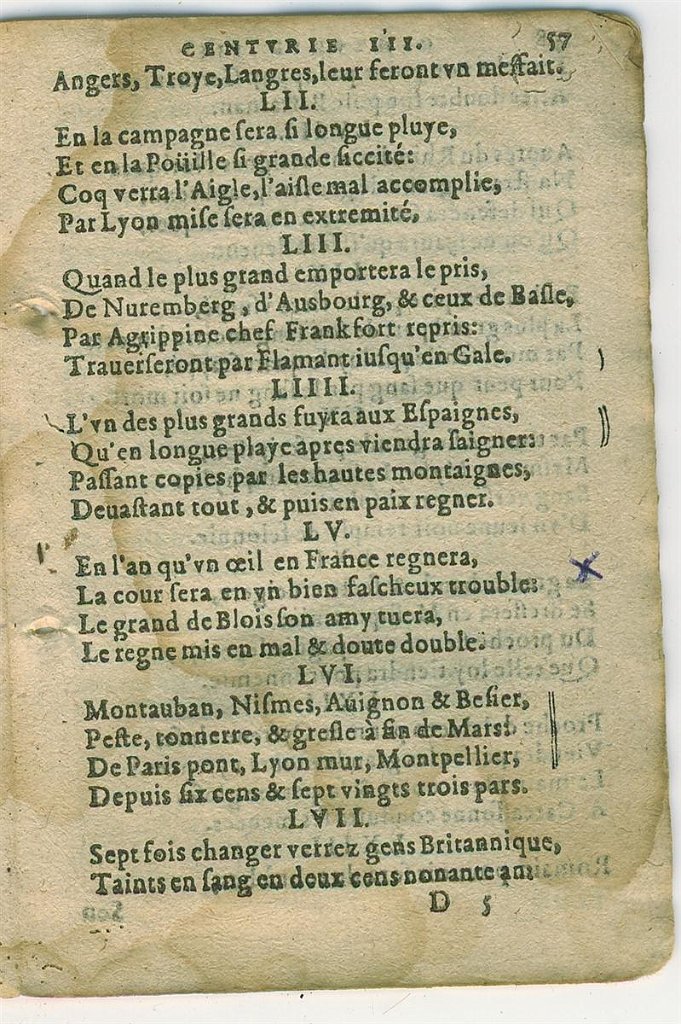 CENTVRIE III. 57
Angers, Troye, Langres, leur feront vn meffait.
LII.
En la campagne ſera ſi longue pluye,
Et en la Poüille ſi grande ſiccité:
Coq verra l'Aigle, l'aiſle mal accomplie,
Par Lyon miſe ſera en extremité,
LIII.
Quand le plus grand emportera le pris,
De Nuremberg, d'Ausbourg, & ceux de Baſle,
Par Agrippine chef Frankfort repris:
Trauerſeront par Flamant iuſqu'en Gale.
LIIII.
L'vn des plus grands fuyra aux Eſpaignes,
Qu'en longue playe apres viendra ſaigner:
Paſſant copies par les hautes montaignes,
Deuaſtant tout, & puis en paix regner.
LV.
En l'an qu'vn œil en France regnera,
La cour ſera en vn bien faſcheux trouble:
Le grand de Blois ſon amy tuera,
Le regne mis en mal & doute double.
LVI.
Montauban, Niſmes, Auignon & Beſier,
Peſte, tonnerre, & greſle à fin de Mars:
De Paris pont, Lyon mur, Montpellier,
Depuis ſix cens & ſept vingts trois pars.
LVII.
Sept fois changer verrez gens Britannique,
Taints en ſang en deux cens nonante an:
D 5